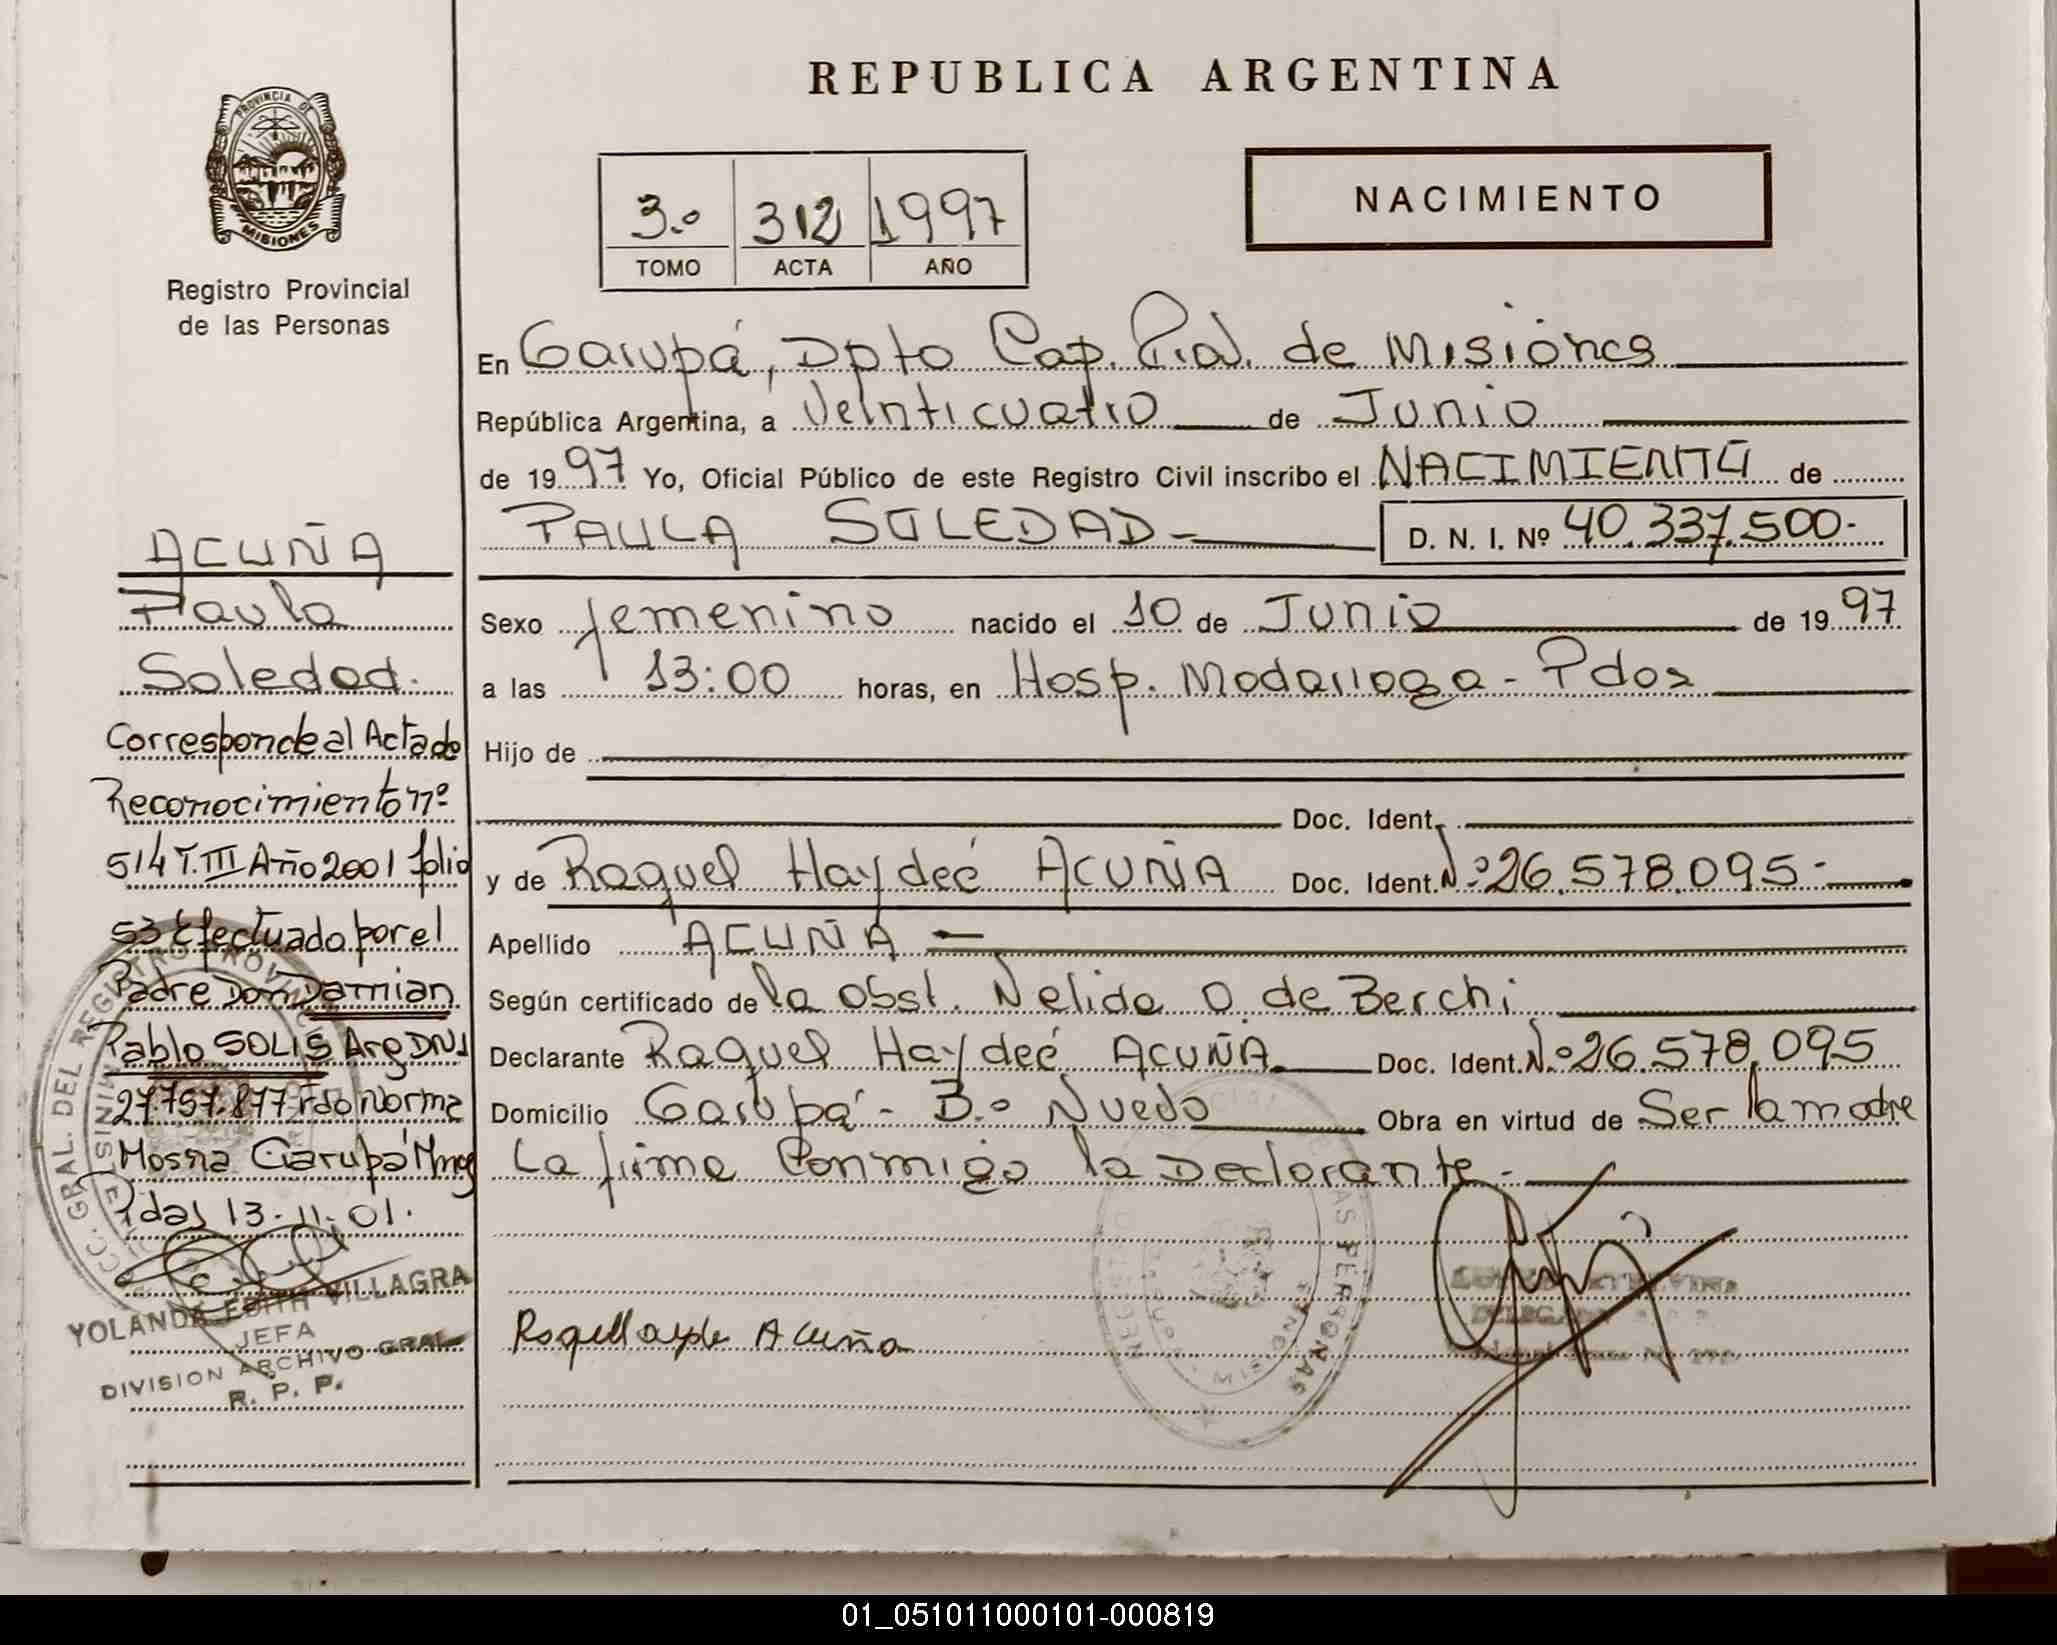 REPUBLICA ARGENTINA
PROVINCIA DE
MISIONES
Registro Provincial
de las Personas
3.º 312 1997
TOMO ACTA AÑO
NACIMIENTO
En Garupá, Dpto Cap. Pcia. de Misiones
República Argentina, a Veinticuatro de Junio
de 1997 Yo, Oficial Público de este Registro Civil inscribo el NACIMIENTO de
PAULA SOLEDAD- D. N. I. Nº 40.337.500-
Sexo femenino nacido el 10 de Junio de 1997
a las 13:00 horas, en Hosp. Madariaga - Pdas
Hijo de
Doc. Ident.
y de Raquel Haydeé ACUÑA Doc. Ident. Nº 26.578.095-
Apellido ACUÑA -
Según certificado de la obst. Nelida O. de Berchi
Declarante Raquel Haydeé ACUÑA Doc. Ident. Nº 26.578.095
Domicilio Garupá - B.º Nuevo Obra en virtud de Ser la madre
La firma Conmigo la Declarante.-
ACUÑA
Paula
Soledad.
Corresponde al Acta de
Reconocimiento nº
514 T.III Año 2001 folio
53 Efectuado por el
Padre Don Damian
Pablo SOLIS Arg DNI
27.757.877 rdo Norma
Garupá Mnes
Pdas 13-11-01.
YOLANDA EDITH VILLAGRA
JEFA
DIVISION ARCHIVO GRAL
R. P. P.
Acuña
01_051011000101-000819